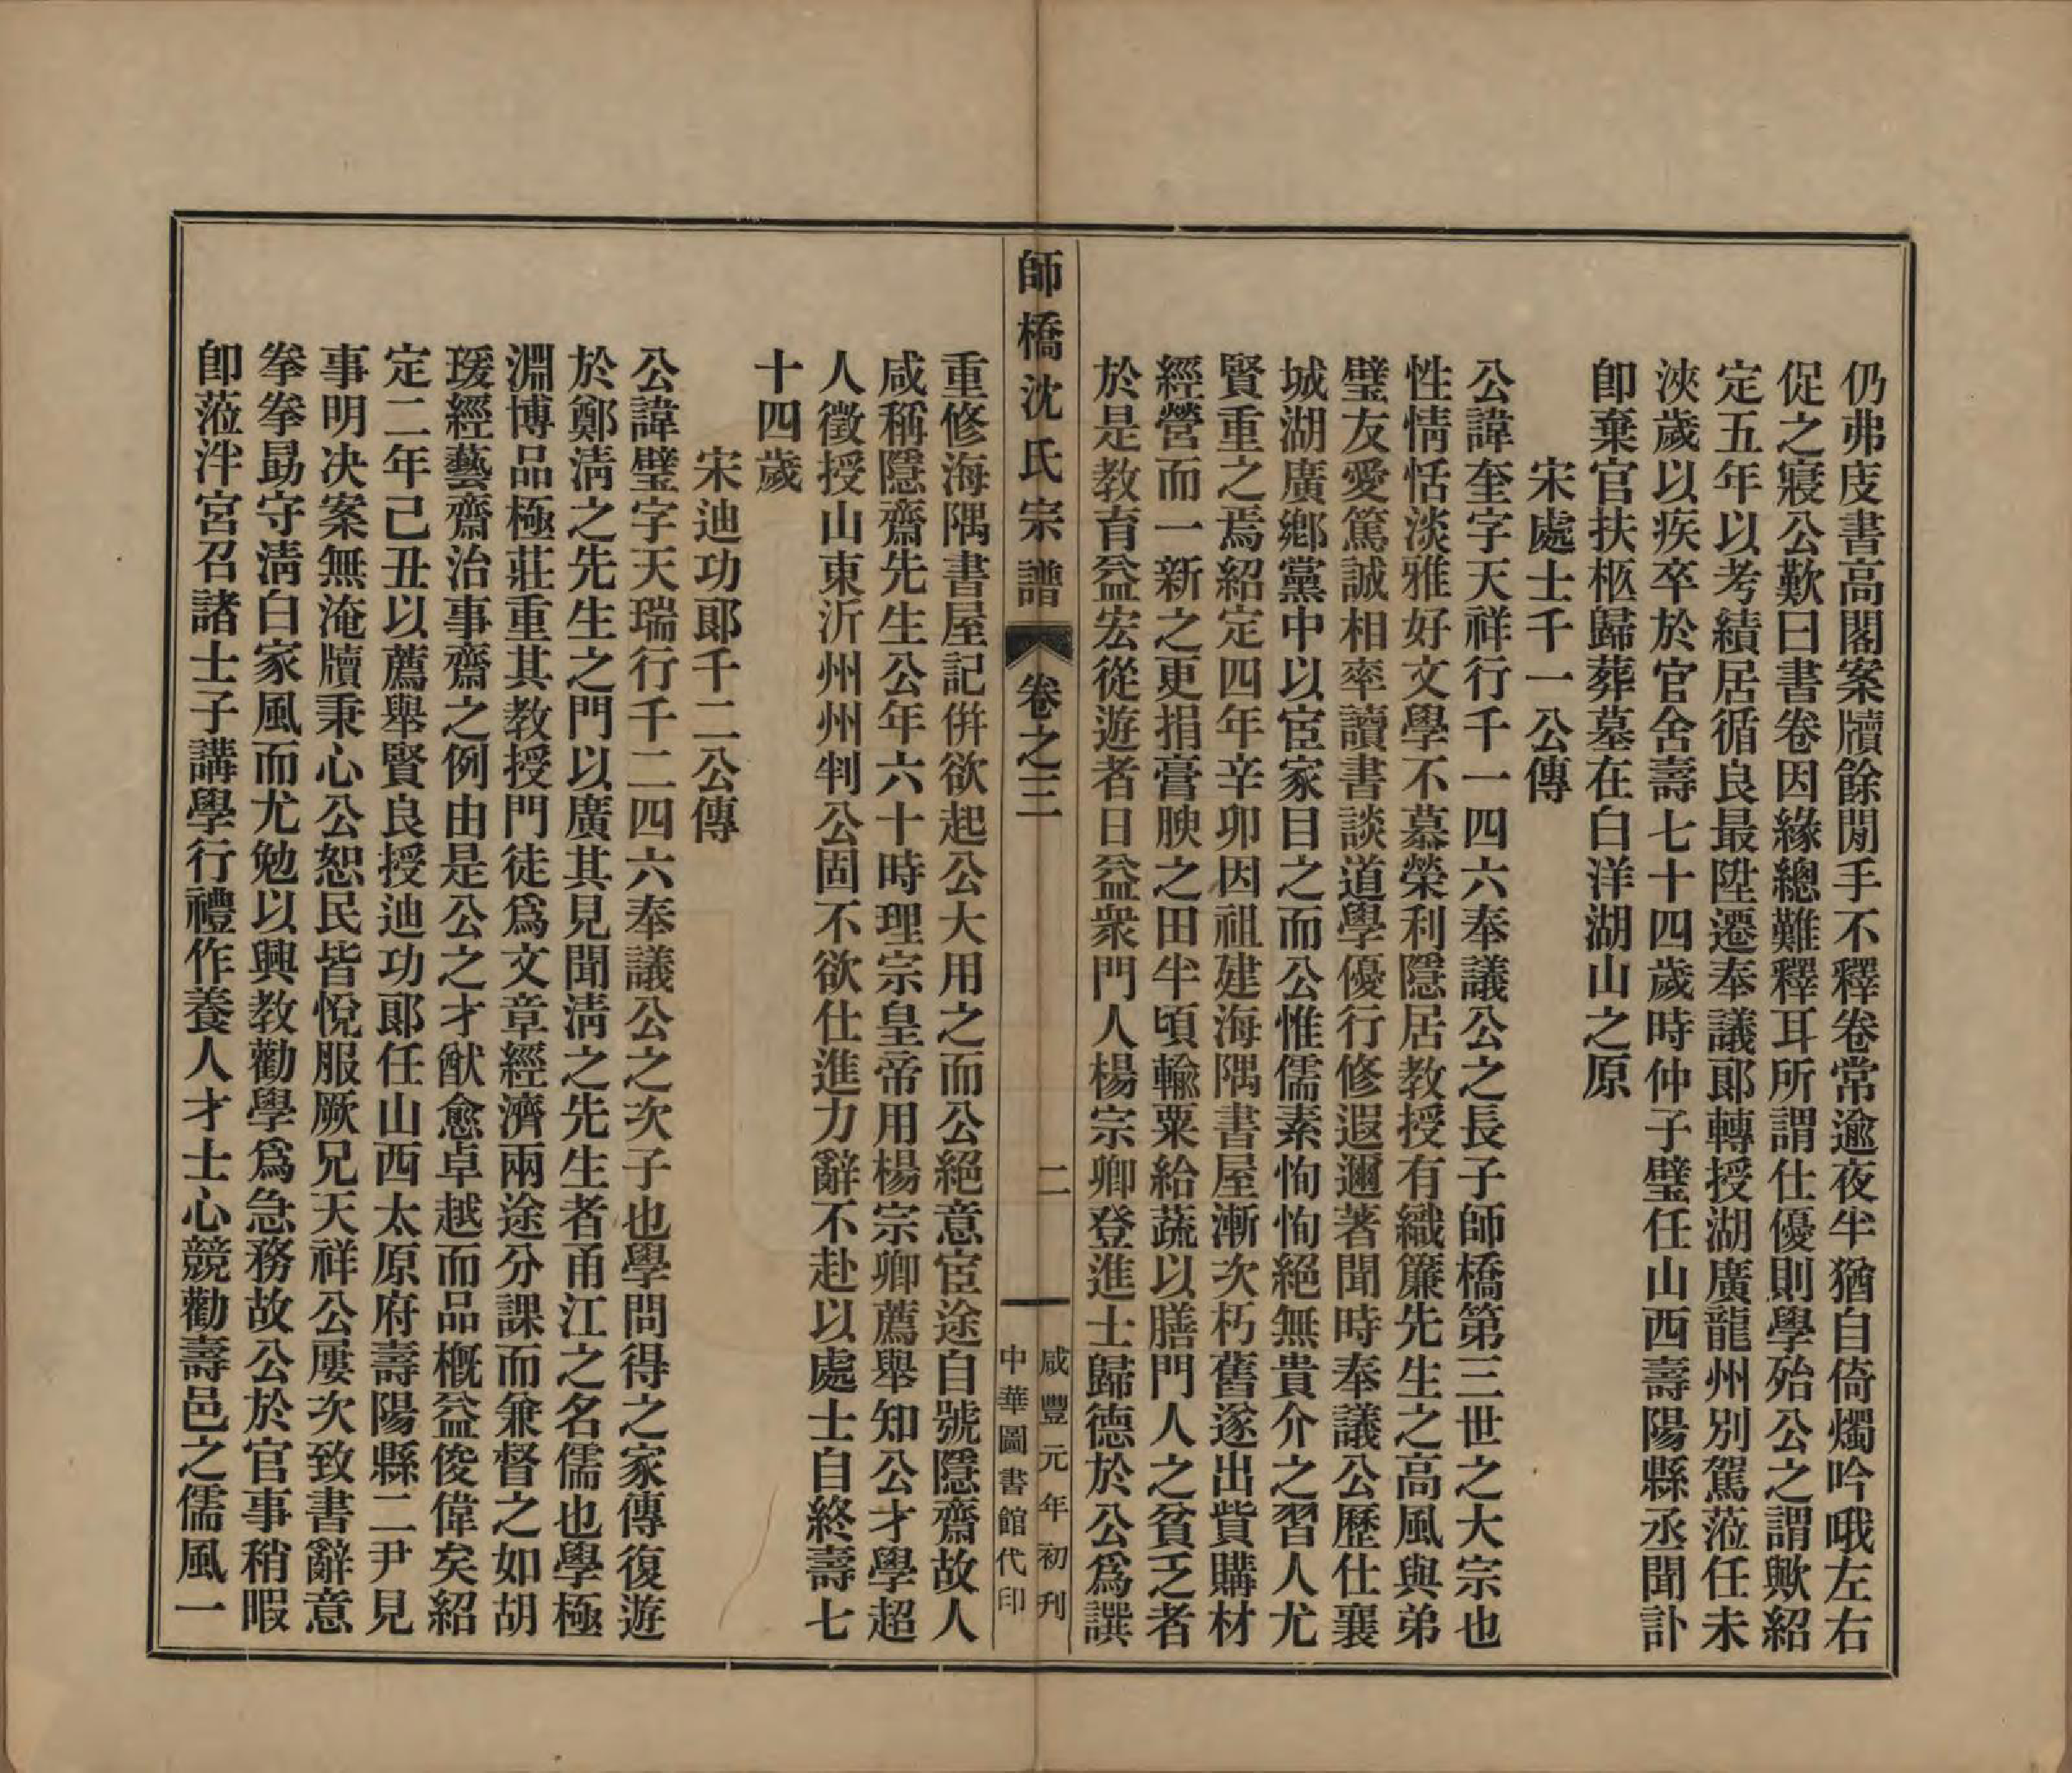 仍弗庋書高閣案牘餘閒手不釋卷常逾夜半猶自倚燭吟哦左右
促之寢公歎曰書卷因緣總難釋耳所謂仕優則學殆公之謂歟紹
定五年以考績居循良最陞遷奉議郞轉授湖廣龍州別駕蒞任未
浹歲以疾卒於官舍壽七十四歲時仲子璧任山西壽陽縣丞聞訃
卽棄官扶柩歸葬墓在白洋湖山之原
宋處士千一公傳
公諱奎字天祥行千一四六奉議公之長子師橋第三世之大宗也
性情恬淡雅好文學不慕榮利隱居敎授有織簾先生之高風與弟
璧友愛篤誠相率讀書談道學優行修遐邇著聞時奉議公歷仕襄
城湖廣鄕黨中以宦家目之而公惟儒素恂恂絕無貴介之習人尤
賢重之焉紹定四年辛卯因祖建海隅書屋漸次朽舊遂出貲購材
經營而一新之更捐膏腴之田半頃輸粟給蔬以膳門人之貧乏者
於是敎育益宏從遊者日益衆門人楊宗卿登進士歸德於公爲譔
師橋沈氏宗譜
卷之三
二
咸豐元年初刊
中華圖書館代印
重修海隅書屋記倂欲起公大用之而公絕意宦途自號隱齋故人
咸稱隱齋先生公年六十時理宗皇帝用楊宗卿薦舉知公才學超
人徵授山東沂州州判公固不欲仕進力辭不赴以處士自終壽七
十四歲
宋迪功郞千二公傳
公諱璧字天瑞行千二四六奉議公之次子也學問得之家傳復遊
於鄭淸之先生之門以廣其見聞淸之先生者甬江之名儒也學極
淵博品極莊重其敎授門徒爲文章經濟兩途分課而兼督之如胡
瑗經藝齋治事齋之例由是公之才猷愈卓越而品槪益俊偉矣紹
定二年己丑以薦舉賢良授迪功郞任山西太原府壽陽縣二尹見
事明决案無淹牘秉心公恕民皆悅服厥兄天祥公屢次致書辭意
拳拳勗守淸白家風而尤勉以興敎勸學爲急務故公於官事稍暇
卽蒞泮宮召諸士子講學行禮作養人才士心競勸壽邑之儒風一